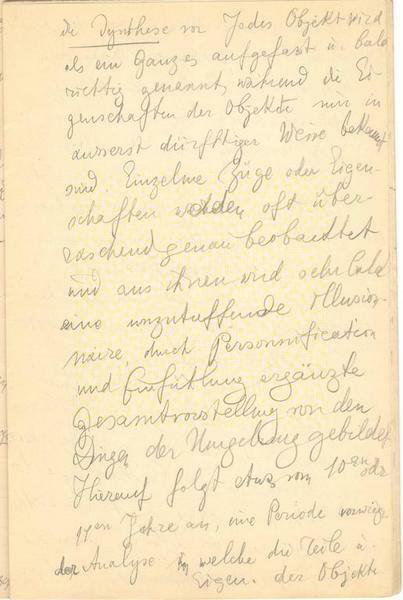 die Synthese vor Jedes Objekt wird
als ein Ganzes aufgefasst u. bald
richtig genannt, während die Ei-
genschaften der Objekte nur in
äusserst dürftiger Weise bekannt
sind. Einzelne Züge oder Eigen-
schaften werden oft über-
raschend genau beobachtet
und aus ihnen wird sehr bald
eine unzutreffende illusion-
näre, durch Personnification
und Einfühlung ergänzte
Gesamtvorstellung von den
Dingen der Umgebung gebildet
Hierauf folgt etwa vom 10ten oder
11ten Jahre an, eine Periode
der Analyse in welche die Teile u.
Eigen. der Objekte